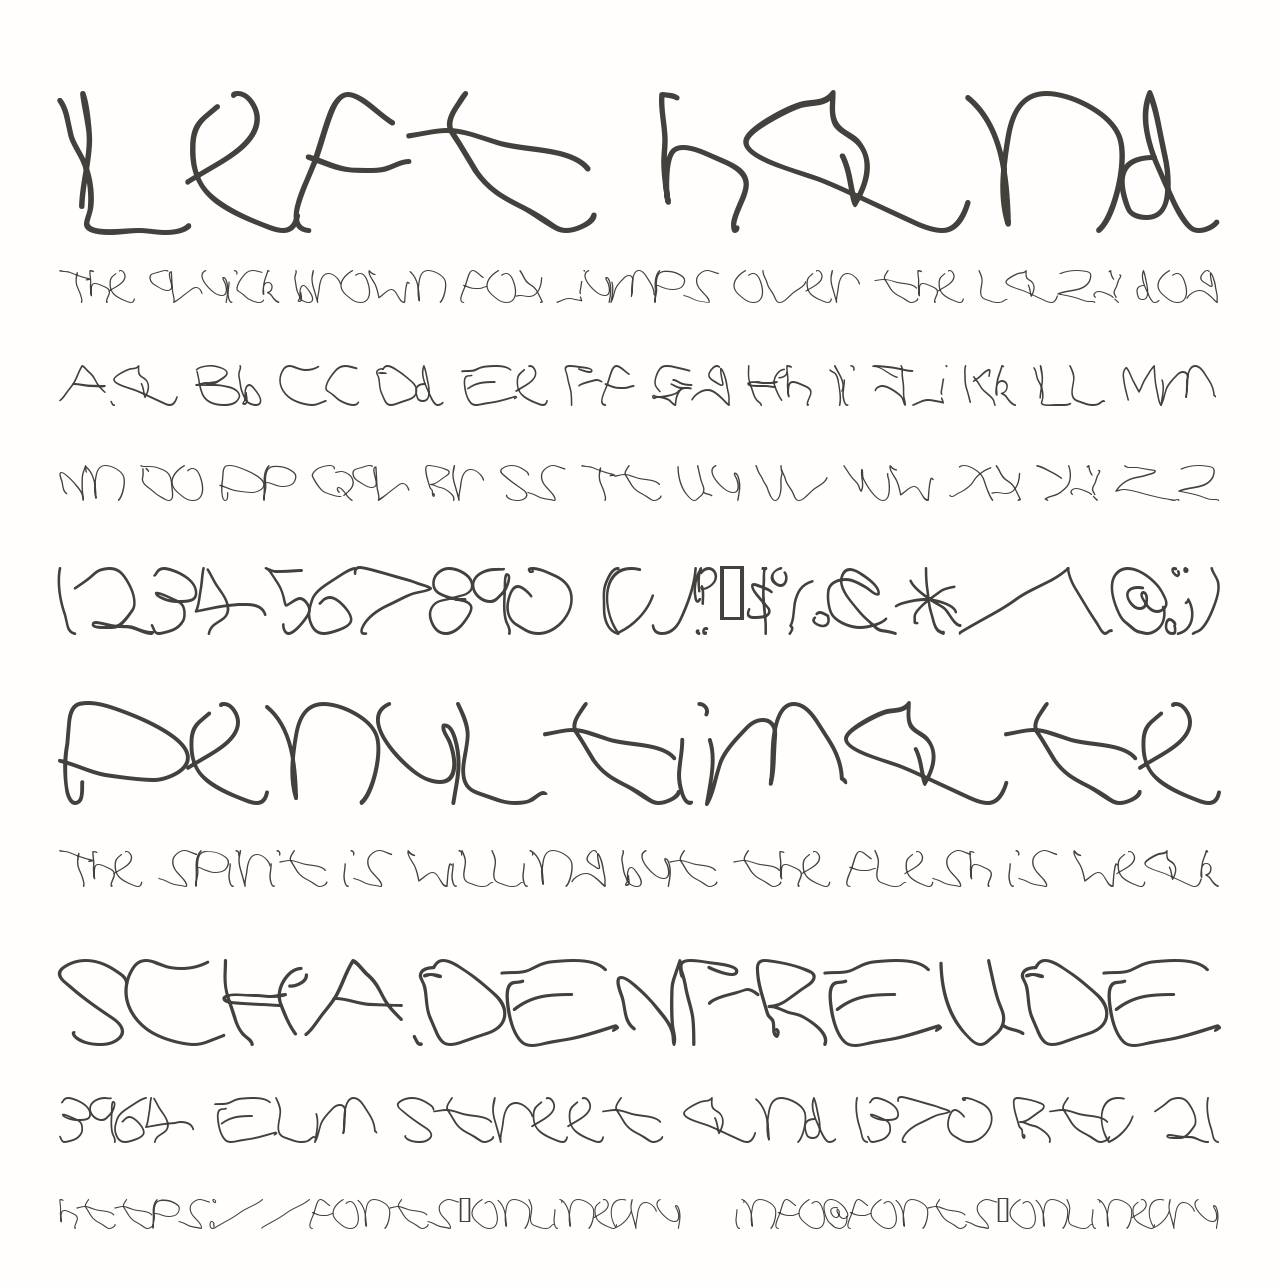 Left hand
The quick brown fox jumps over the lazy dog
Aa Bb Cc Dd Ee Ff Gg Hh Ii Jj Kk Ll Mm
Nn Oo Pp Qq Rr Ss Tt Uu Vv Ww Xx Yy Zz
1234567890 (,/!?$%&*^@;)
Penultimate
The spirit is willing but the flesh is weak
SCHADENFREUDE
3964 Elm Street and 1370 Rt. 21